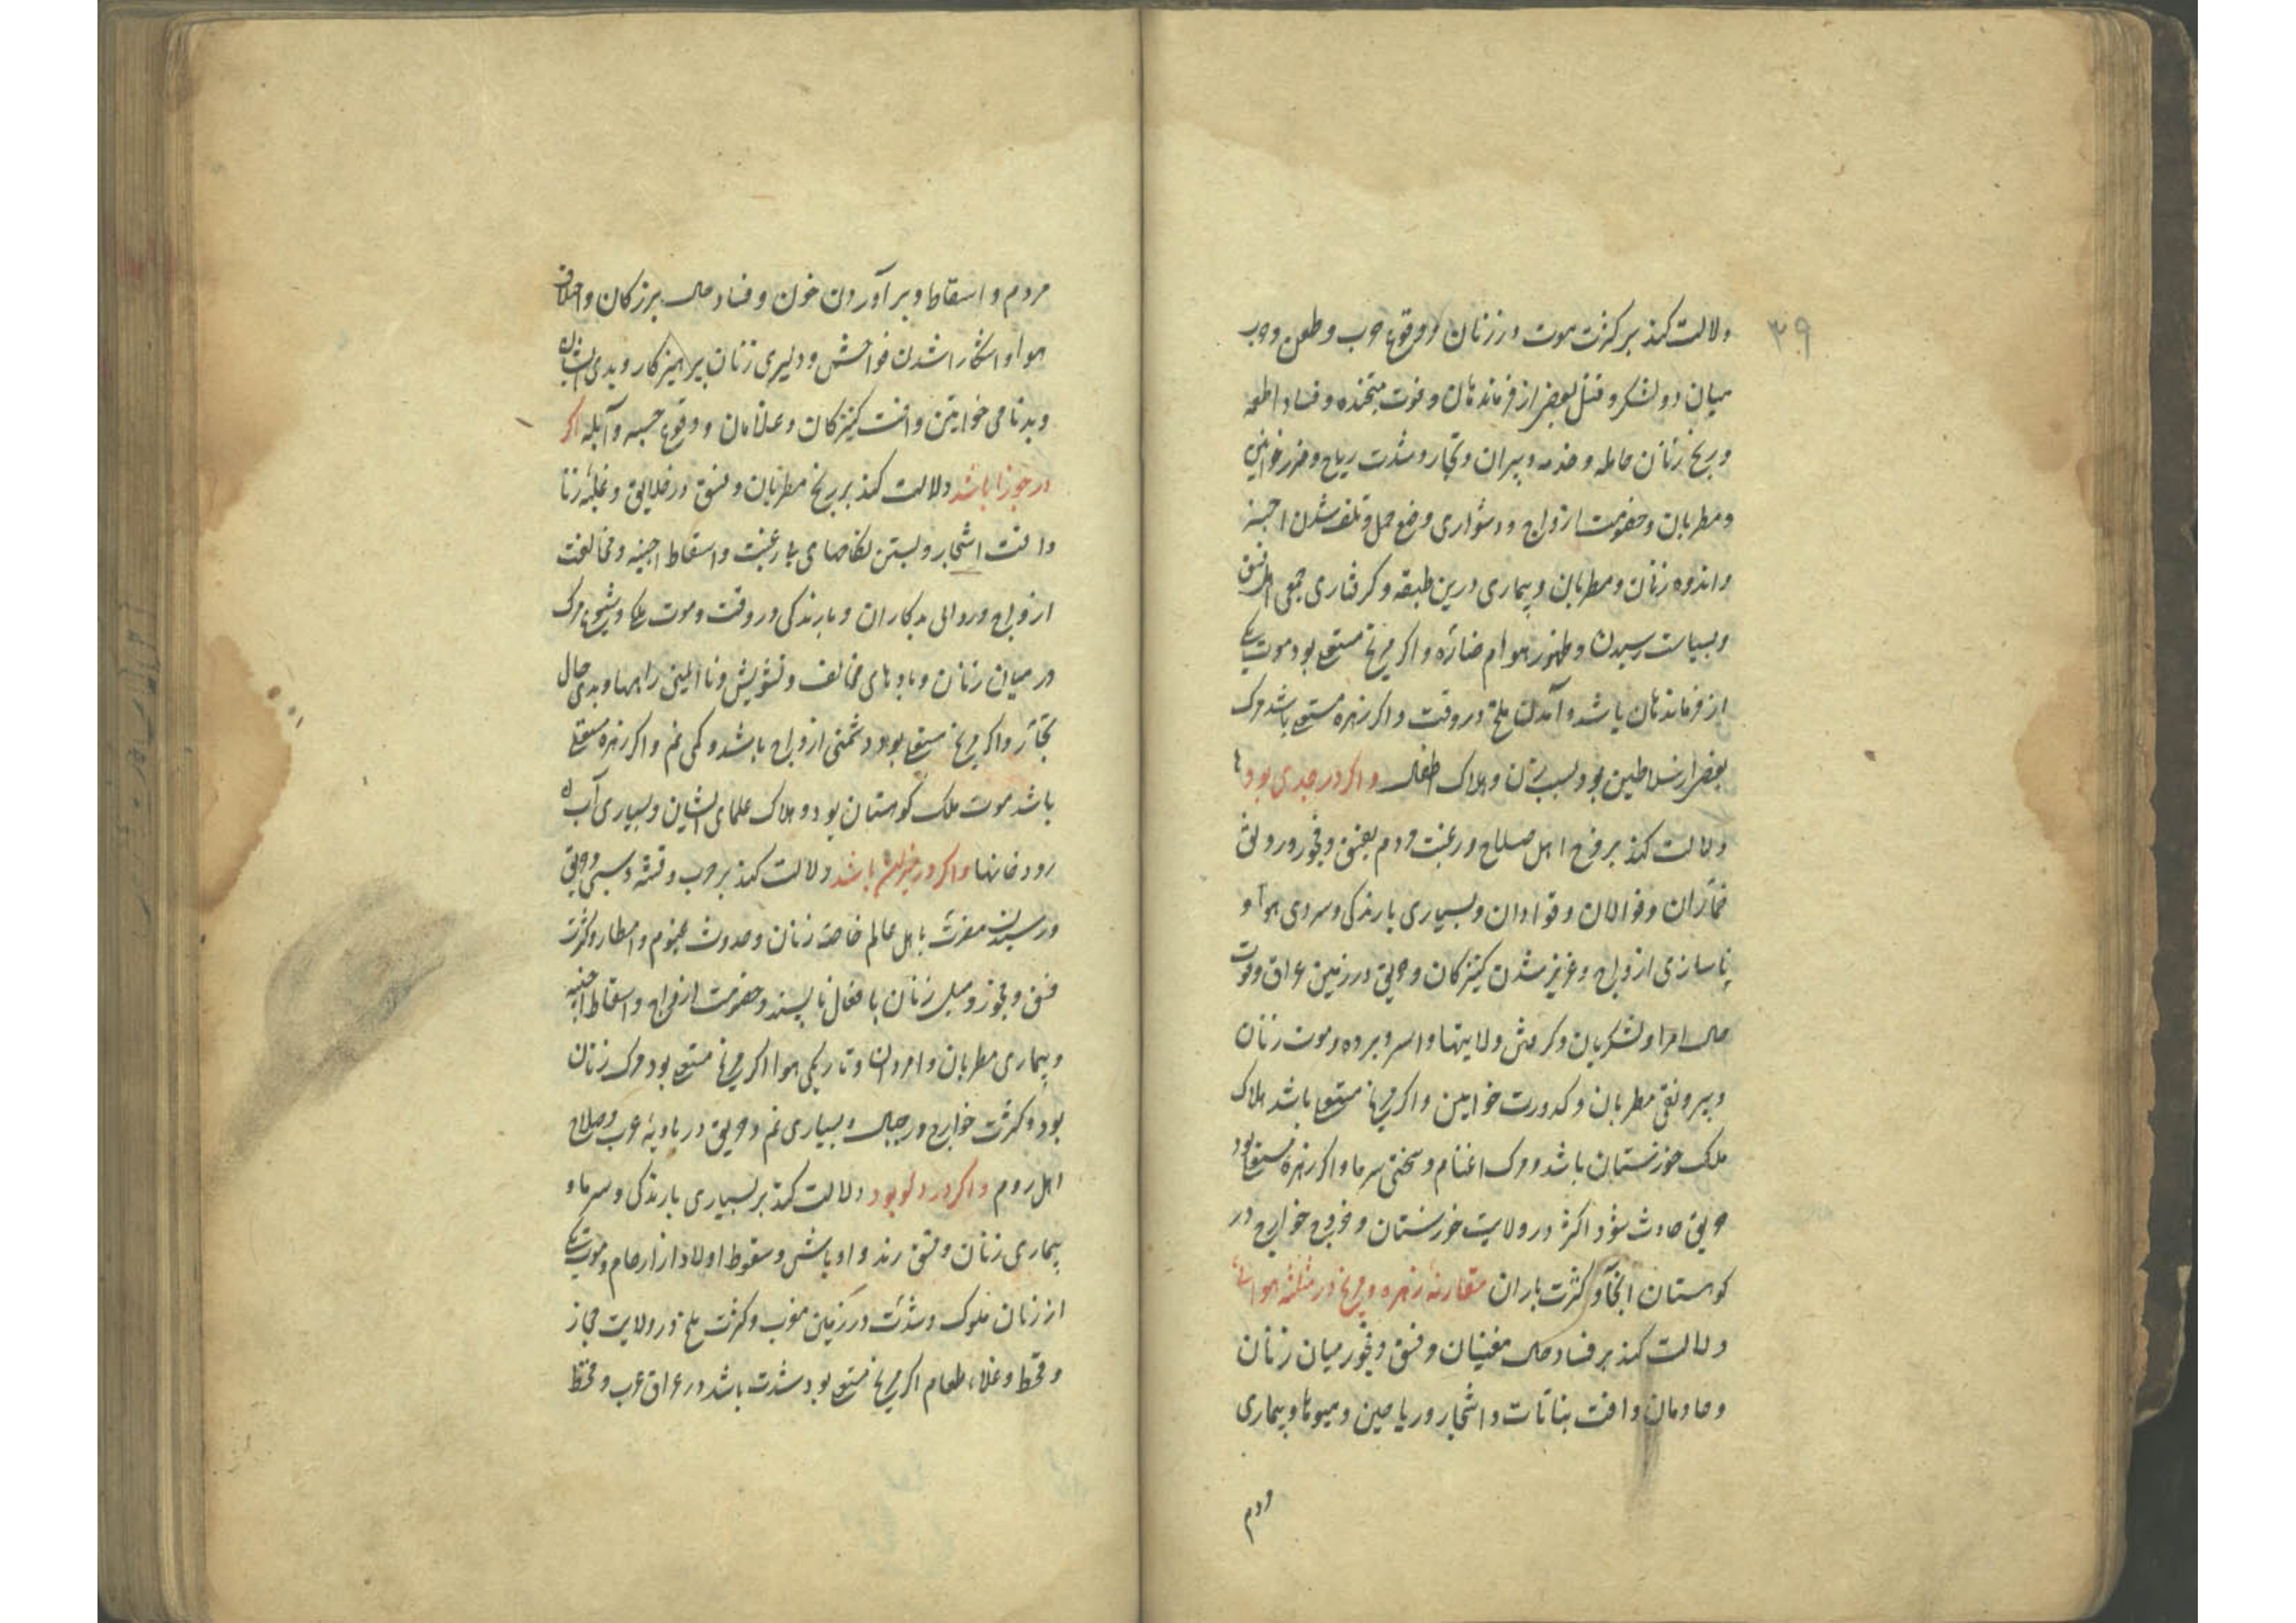 ۳۹
دلالت کند بر کثرت موت در زنان و وقوع حرب و طعن و حرب
میان دو لشکر و قتل بعضی از فرماندهان و فوت متخذه و فساد اطعمه
و رنج زنان حامله و خدمه و پیران و تجار و شدت ریاح و ضرر خواتین
و مطربان و خصومت ازواج و دشواری وضع حمل و تلف شدن اجنه
و اندوه زنان و مطربان و بیماری درین طبقه و کرفتاری جمعی اهل فسق
و بسیاست رسیدن و ظهور هوام ضاره و اکر مریخ مستعلی بود موت یکی
از فرماندهان باشد و آمدن ملخ در وقت و اکر زهره مستعلی باشد مرک
بعضی از سلاطین بود بسبب زنان و هلاک اطفال و اکر در جدی بود
دلالت کند بر فرح اهل صلاح و رغبت مردم بفسق و فجور و رونق
خماران و قوالان و قوادان و بسیاری بارندکی و سردی هوا و
ناسازی ازواج و عزیز شدن کنیزکان و حریق در زمین عراق و قوت
حال امرا و لشکریان و کرفتن ولایتها و اسر و برده و موت زنان
و بیرونقی مطربان و کدورت خواتین و اکر مریخ مستعلی باشد هلاک
ملک خوزستان باشد و مرک اغنام و سختی سرما و اکر زهره مستعلی بود
حریق حادث شود اکثر در ولایت خوزستان و خروج خوارج در
کوهستان انجا و کثرت باران مقارنه زهره و مریخ در مثلثه هوائی
دلالت کند بر فساد حال مغنیان و فسق و فجور میان زنان
و خادمان و افت نباتات و اشجار و ریاحین و میوها و بیماری
مردم
مردم و اسقاط و بر آوردن خون و فساد حال بزرکان و اختلاف
هوا و اشکارا شدن فواحش و دلیری زنان پرهیزکار و بدی ایشان
و بدنامی خواتین و افت کنیزکان و غلامان و وقوع حسبه و آبله اکر
در جوزا باشد دلالت کند بر رنج مطربان و فسق در خلایق و غلبه زنا
و افت اشجار و بستن نکاحهای با رغبت و اسقاط اجنه و مخالفت
ازواج و روائی بدکاران و بارندکی در وقت و موت علما و شیوع مرک
در میان زنان و بادهای مخالف و تشویش و ناایمنی راهها و بدی حال
تجار و اکر مریخ مستعلی بود دشمنی ازواج باشد و کمی نم و اکر زهره مستعلی
باشد موت ملک کوهستان بود و هلاک علمای ایشان و بسیاری آب
رودخانها و اکر در میزان باشد دلالت کند بر حرب و فتنه و سبی و حریق
و رسیدن مضرت باهل عالم خاصه زنان و حدوث غیوم و امطار و کثرت
فسق و فجور و میل زنان بافعال ناپسند و خصومت ازواج و اسقاط اجنه
و بیماری مطربان و امردان و تاریکی هوا اکر مریخ مستعلی بود مرک زنان
بود و کثرت خوارج در جبال و بسیاری نم و حریق در بادیه عرب و صلاح
اهل روم و اکر در دلو بود دلالت کند بر بسیاری بارندکی و سرما و
بیماری زنان و فسق رند و اوباش و سقوط اولاد از ارحام و موت یکی
از زنان ملوک و شدت در زمین مغرب و کثرت ملخ در ولایت حجاز
و قحط و غلاء طعام اکر مریخ مستعلی بود شدت باشد در عراق عرب و قحط